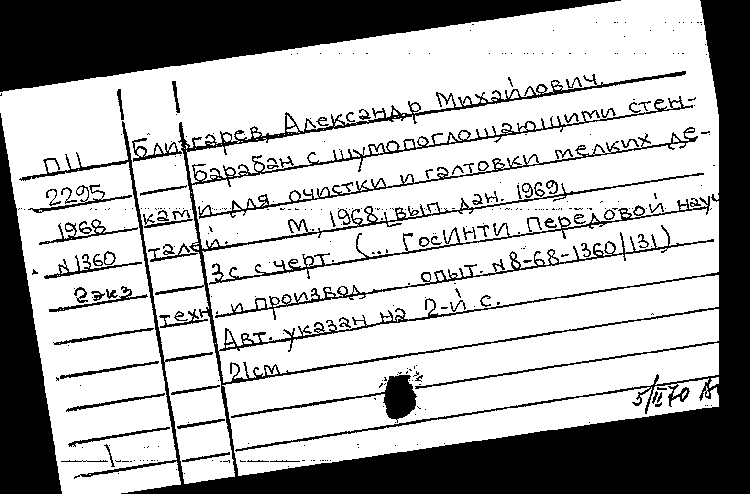 Близгарев, Александр Михайлович.
П11
2295
1968
N1360
2экз
Барабан с шумопоглощающими стен-
ками для очистки и галтовки мелких де-
талей. М., 1968, [вып. дан. 1969].
3с с черт. (... ГосИНТИ. Передовой науч
техн. и производ. ... опыт. N8-68-1360/131).
Авт. указан на 2-й с.
21см.
5/II 70